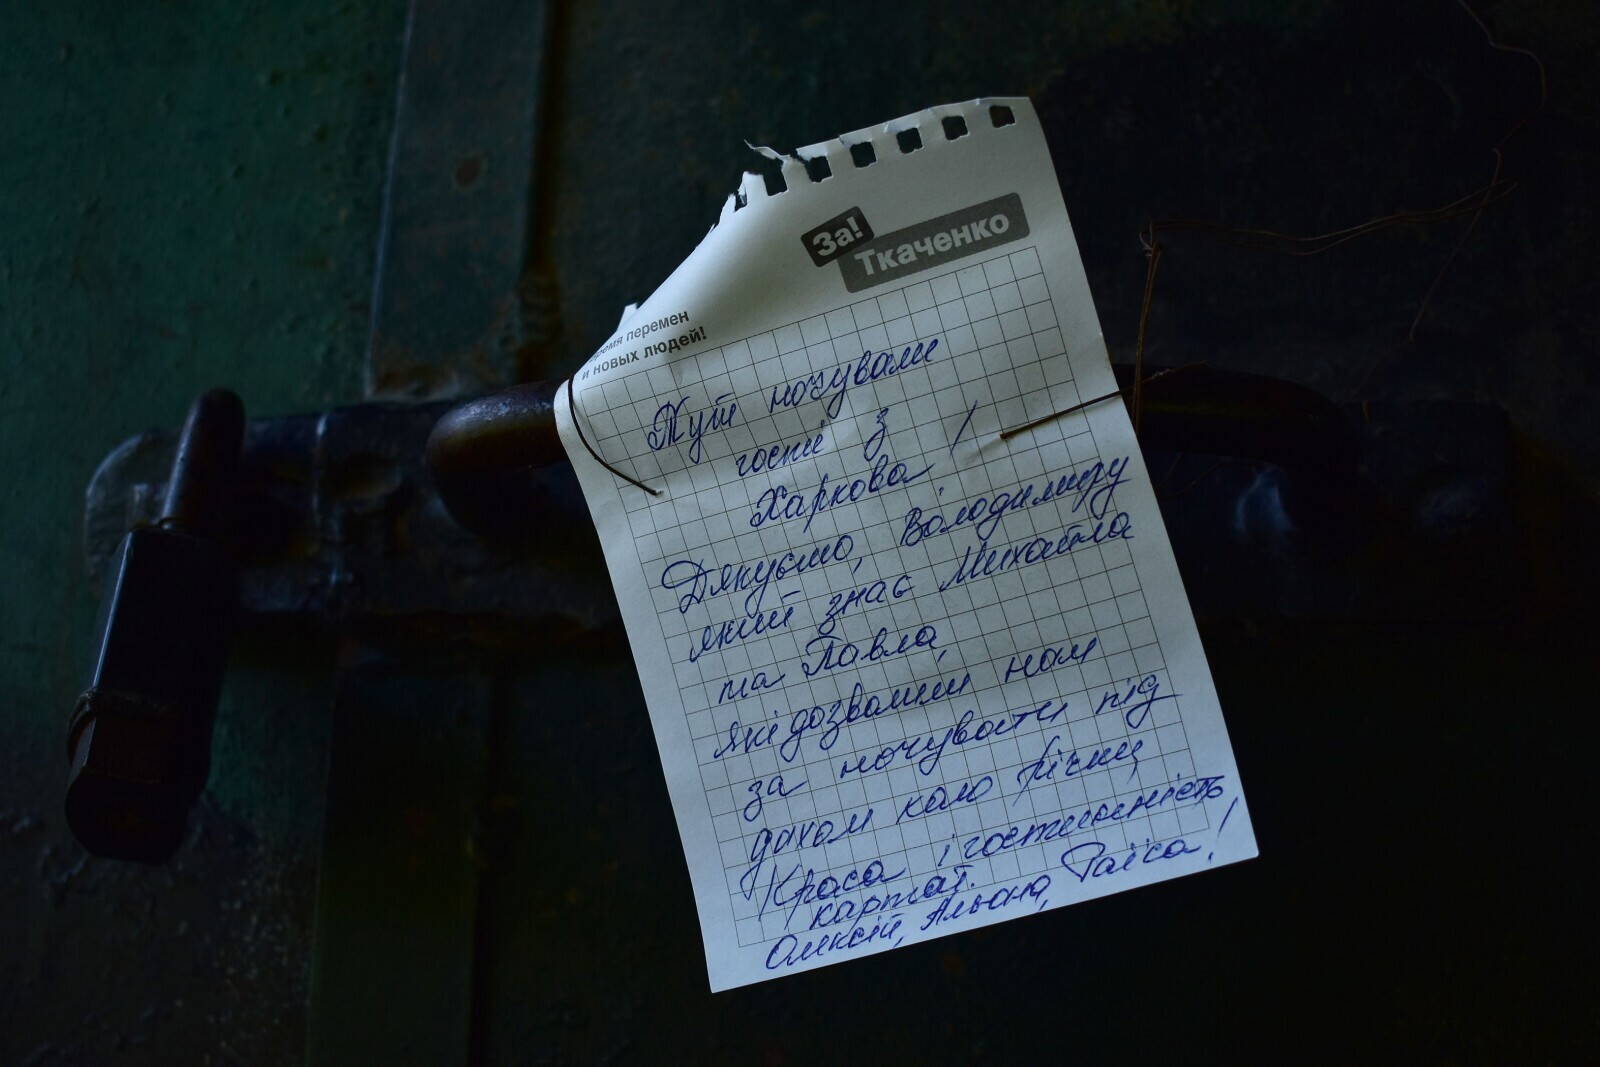 За!
Ткаченко
время перемен
и новых людей!
Тут ночували
гості з
Харкова!
Дякуємо, Володимиру
який знає Михайла
та Павла,
які дозволили нам
за ночувати під
дахом коло річки,
Краса і гостинність
карпат.
Олексій, Альона, Раїса!